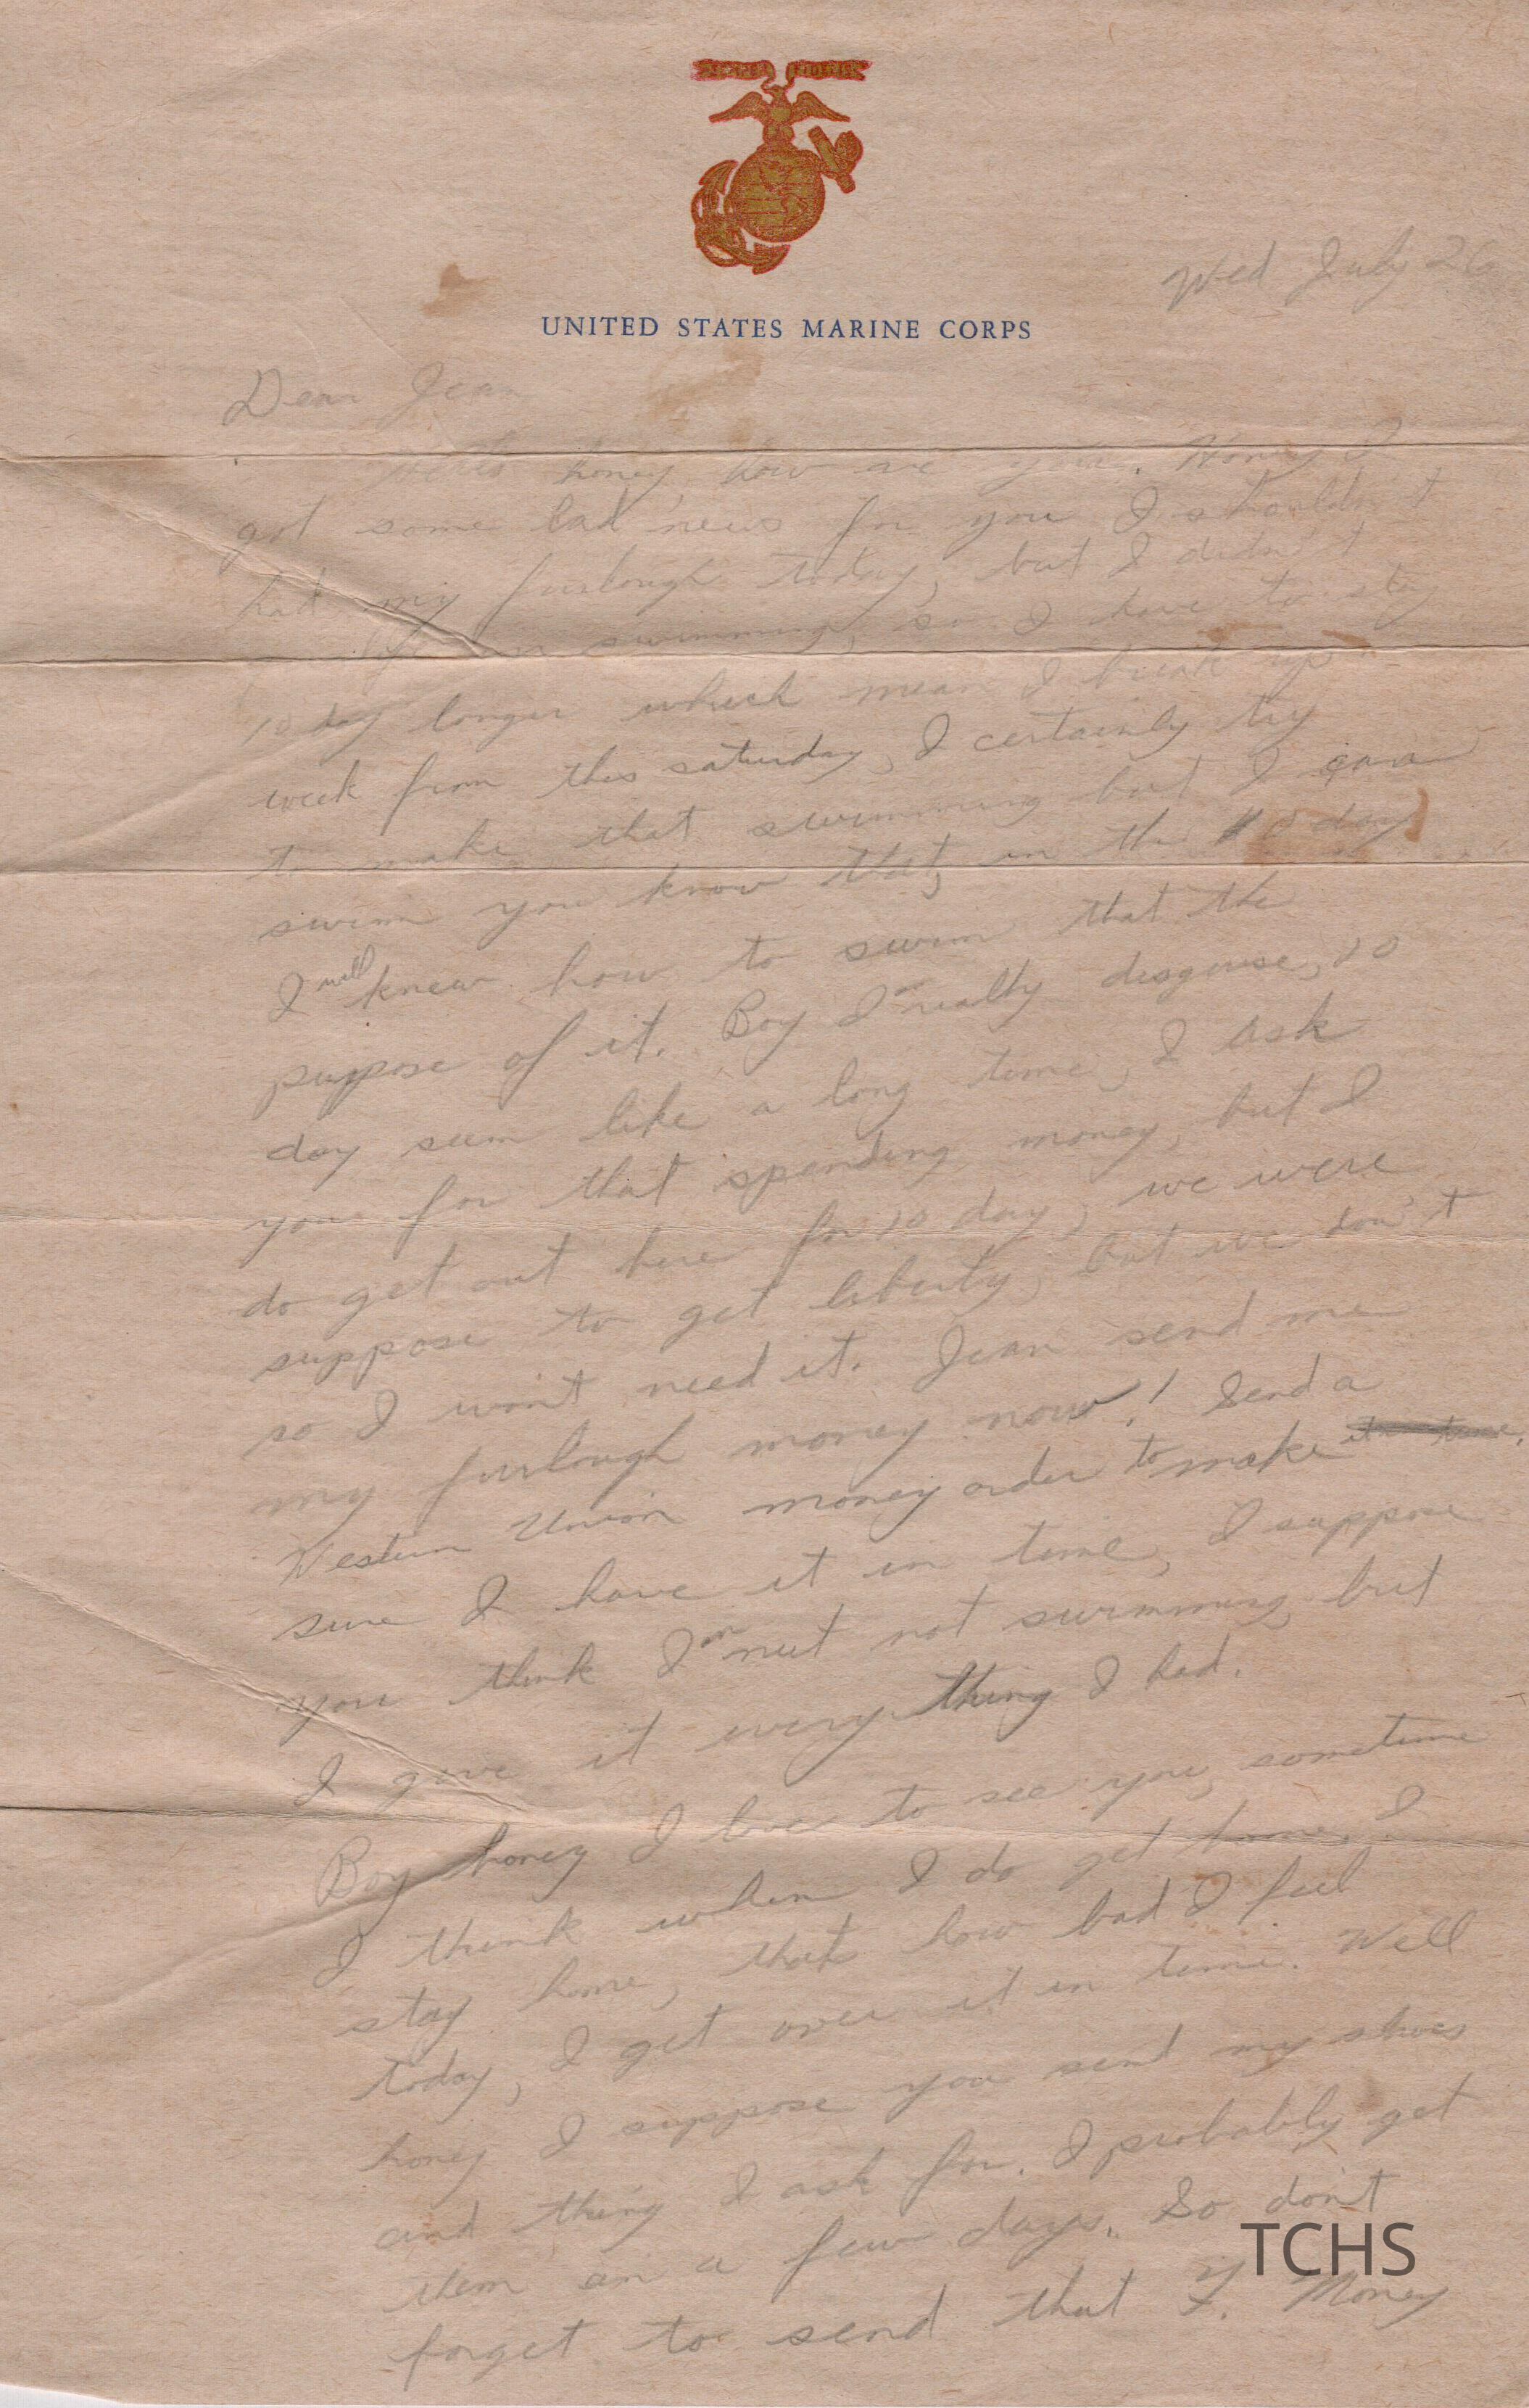 UNITED STATES MARINE CORPS
Wed July 26
Dear Jean
honey, how are you. Honey I
got some bad news for you I shouldn't
had my furlough today, but I didn't
swimming, so I have to stay
10 day longer which mean I break up
week from this saturday, I certainly try
to make that swimming but I
swim you know that, in the 10 day
I will know how to swim that the
puppose of it. Boy I am really disgouse, 10
day seem like a long time, I ask
you for that spending money, but I
do get out here for 10 day, we were
suppose to get liberty, but we don't
so I won't need it. Jean send me
my furlough money now! Send a
Western Union money order to make it time,
sure I have it in time, I suppose
you think I am nut not swimming but
I gave it everything I had.
Boy honey I love to see you, sometime
I think when I do get home, I
stay home, that how bad I feel
today, I get over it in time. Well
honey I suppose you sent my shoes
and thing I ask for. I probably get
them in a few days. So don't
forget to send that F. Money
TCHS